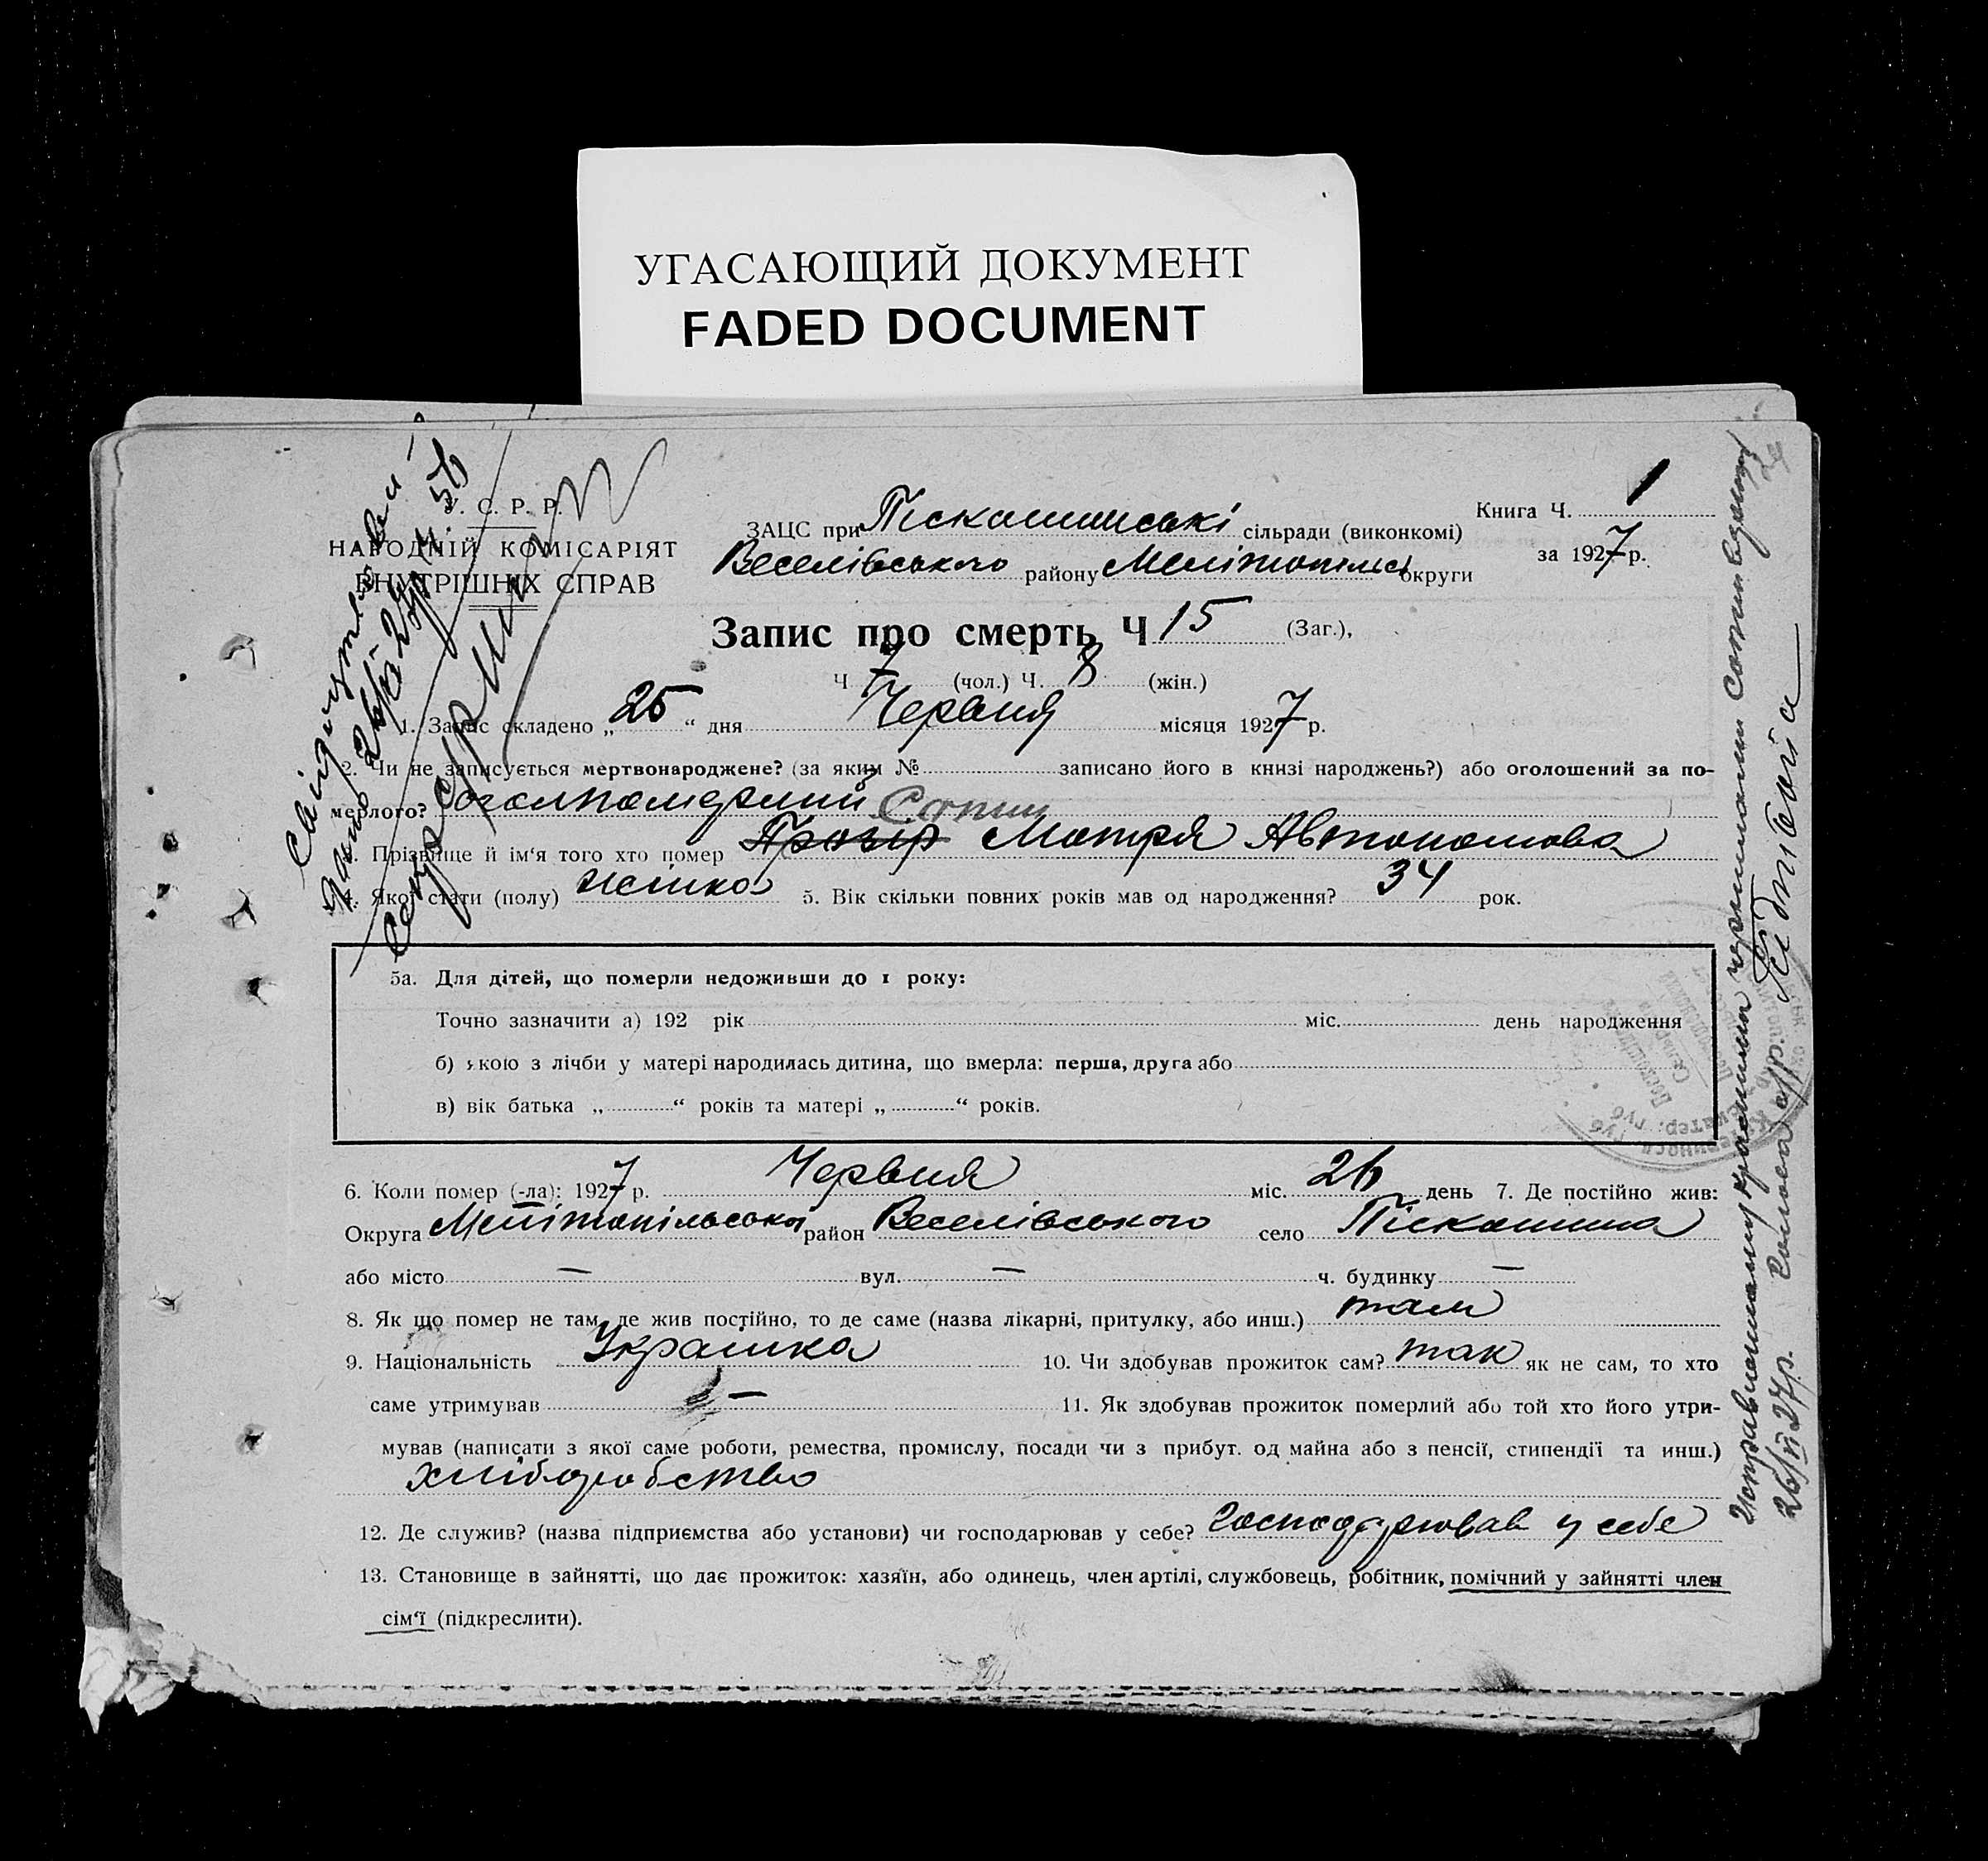 УГАСАЮЩИЙ ДОКУМЕНТ
FADED DOCUMENT
У. С. Р. Р.
НАРОДНІЙ КОМІСАРІЯТ
ВНУТРІШНІХ СПРАВ
ЗАЦС при сільради (виконкомі)
Веселівського району округи
Книга Ч. 1
за 1927 р.
Запис про смерть Ч 15 (Заг.),
Ч 7 (чол.) Ч. 8 (жін.)
1. Запис складено „ 25 “ дня Червня місяця 1927 р.
2. Чи не записується мертвонароджене? (за яким № записано його в книзі народжень?) або оголошений за по-
мерлого?
3. Прізвище й ім‘я того хто помер Мотря Автономова
4. Якої стати (полу) жінка 5. Вік скільки повних років мав од народження? 34 рок.
5а. Для дітей, що померли недоживши до 1 року:
Точно зазначити а) 192 рік міс. день народження
б) якою з лічби у матері народилась дитина, що вмерла: перша, друга або
в) вік батька „ “ років та матері „ “ років.
6. Коли помер (-ла): 1927 р. Червня міс. 26 день 7. Де постійно жив:
Округа Мелітопільська район Веселівського село Піскошина
або місто — вул. — ч. будинку —
8. Як що помер не там, де жив постійно, то де саме (назва лікарні, притулку, або инш.) там
9. Національність Українка 10. Чи здобував прожиток сам? так як не сам, то хто
саме утримував — 11. Як здобував прожиток померлий або той хто його утри-
мував (написати з якої саме роботи, ремества, промислу, посади чи з прибут. од майна або з пенсії, стипендії та инш.)
хліборобство
12. Де служив? (назва підприємства або установи) чи господарював у себе? Господарював у себе
13. Становище в зайнятті, що дає прожиток: хазяїн, або одинець, член артілі, службовець, робітник, помічний у зайнятті член
сім‘ї (підкреслити).